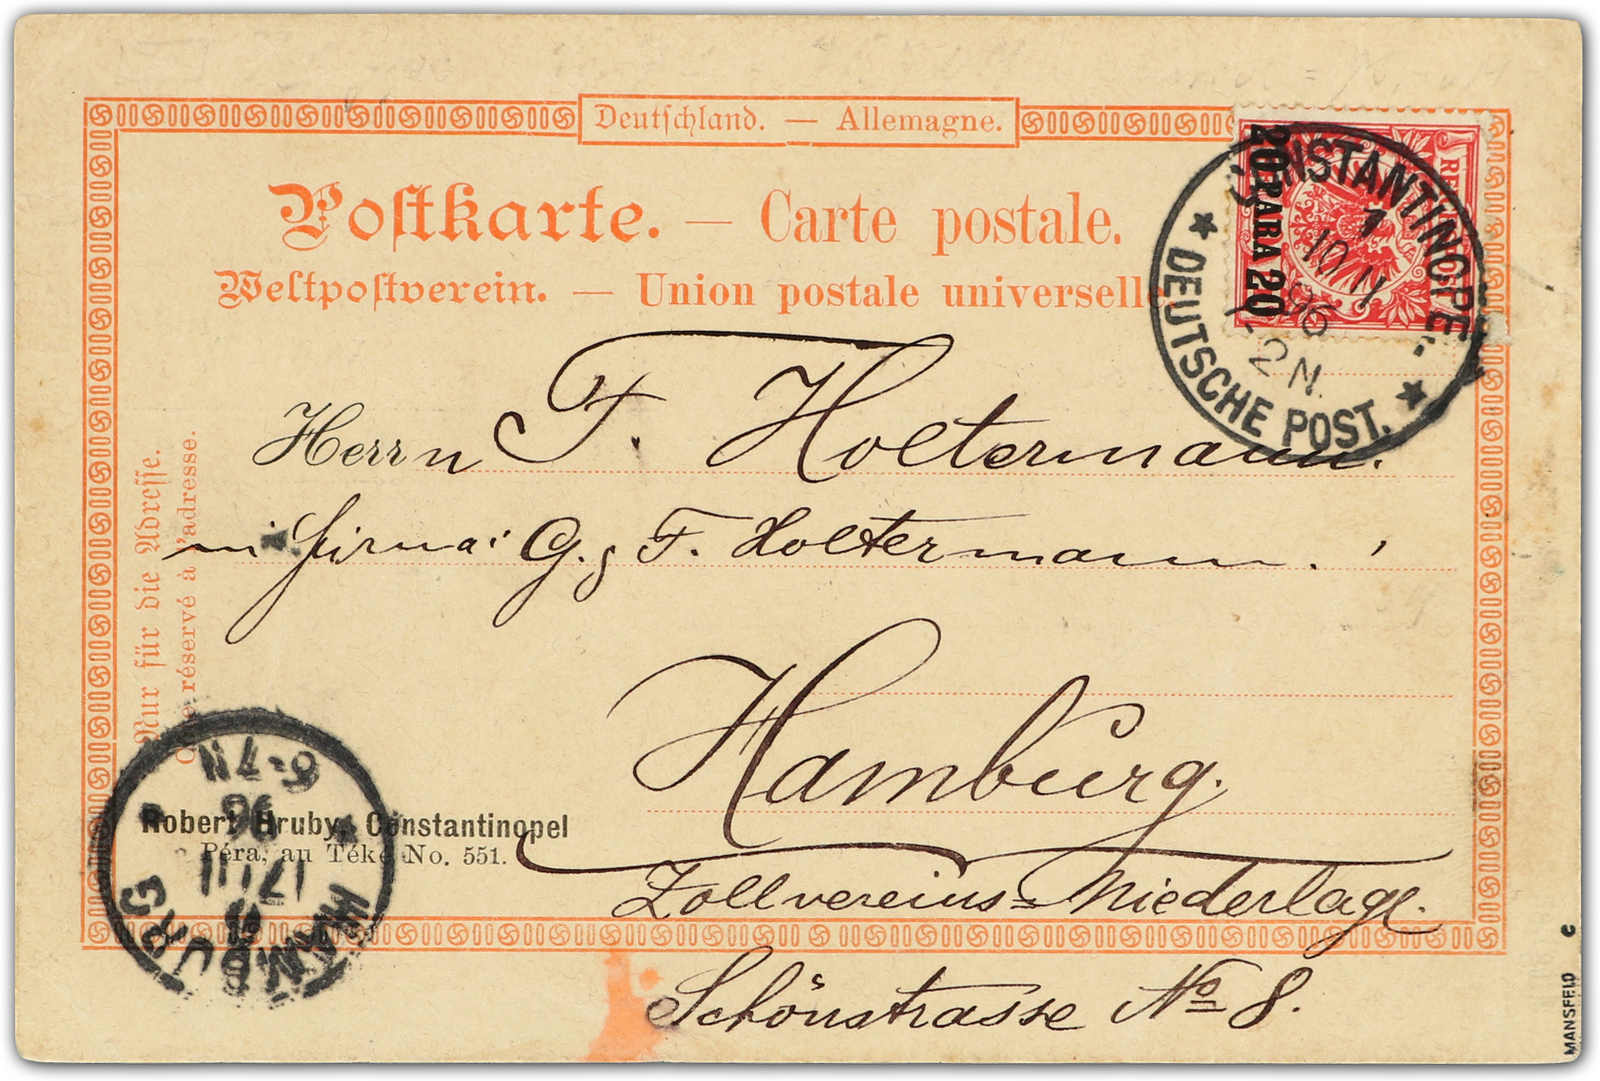 Deutschland. — Allemagne.
Postkarte. — Carte postale.
Weltpostverein. — Union postale universelle
20 PARA 20
CONSTANTINOPEL
1
10 II
96
1-2N.
DEUTSCHE POST.
Herrn F. Holtermann.
in firma: G. & F. Holtermann.
Hamburg.
Zollvereins=Niederlage.
Schönstrasse No 8.
Nur für die Adresse.
Côté réservé à l'adresse.
Robert Hruby, Constantinopel
Péra, au Téké No. 551.
HAMBURG
6-7N
96
MANSFELD